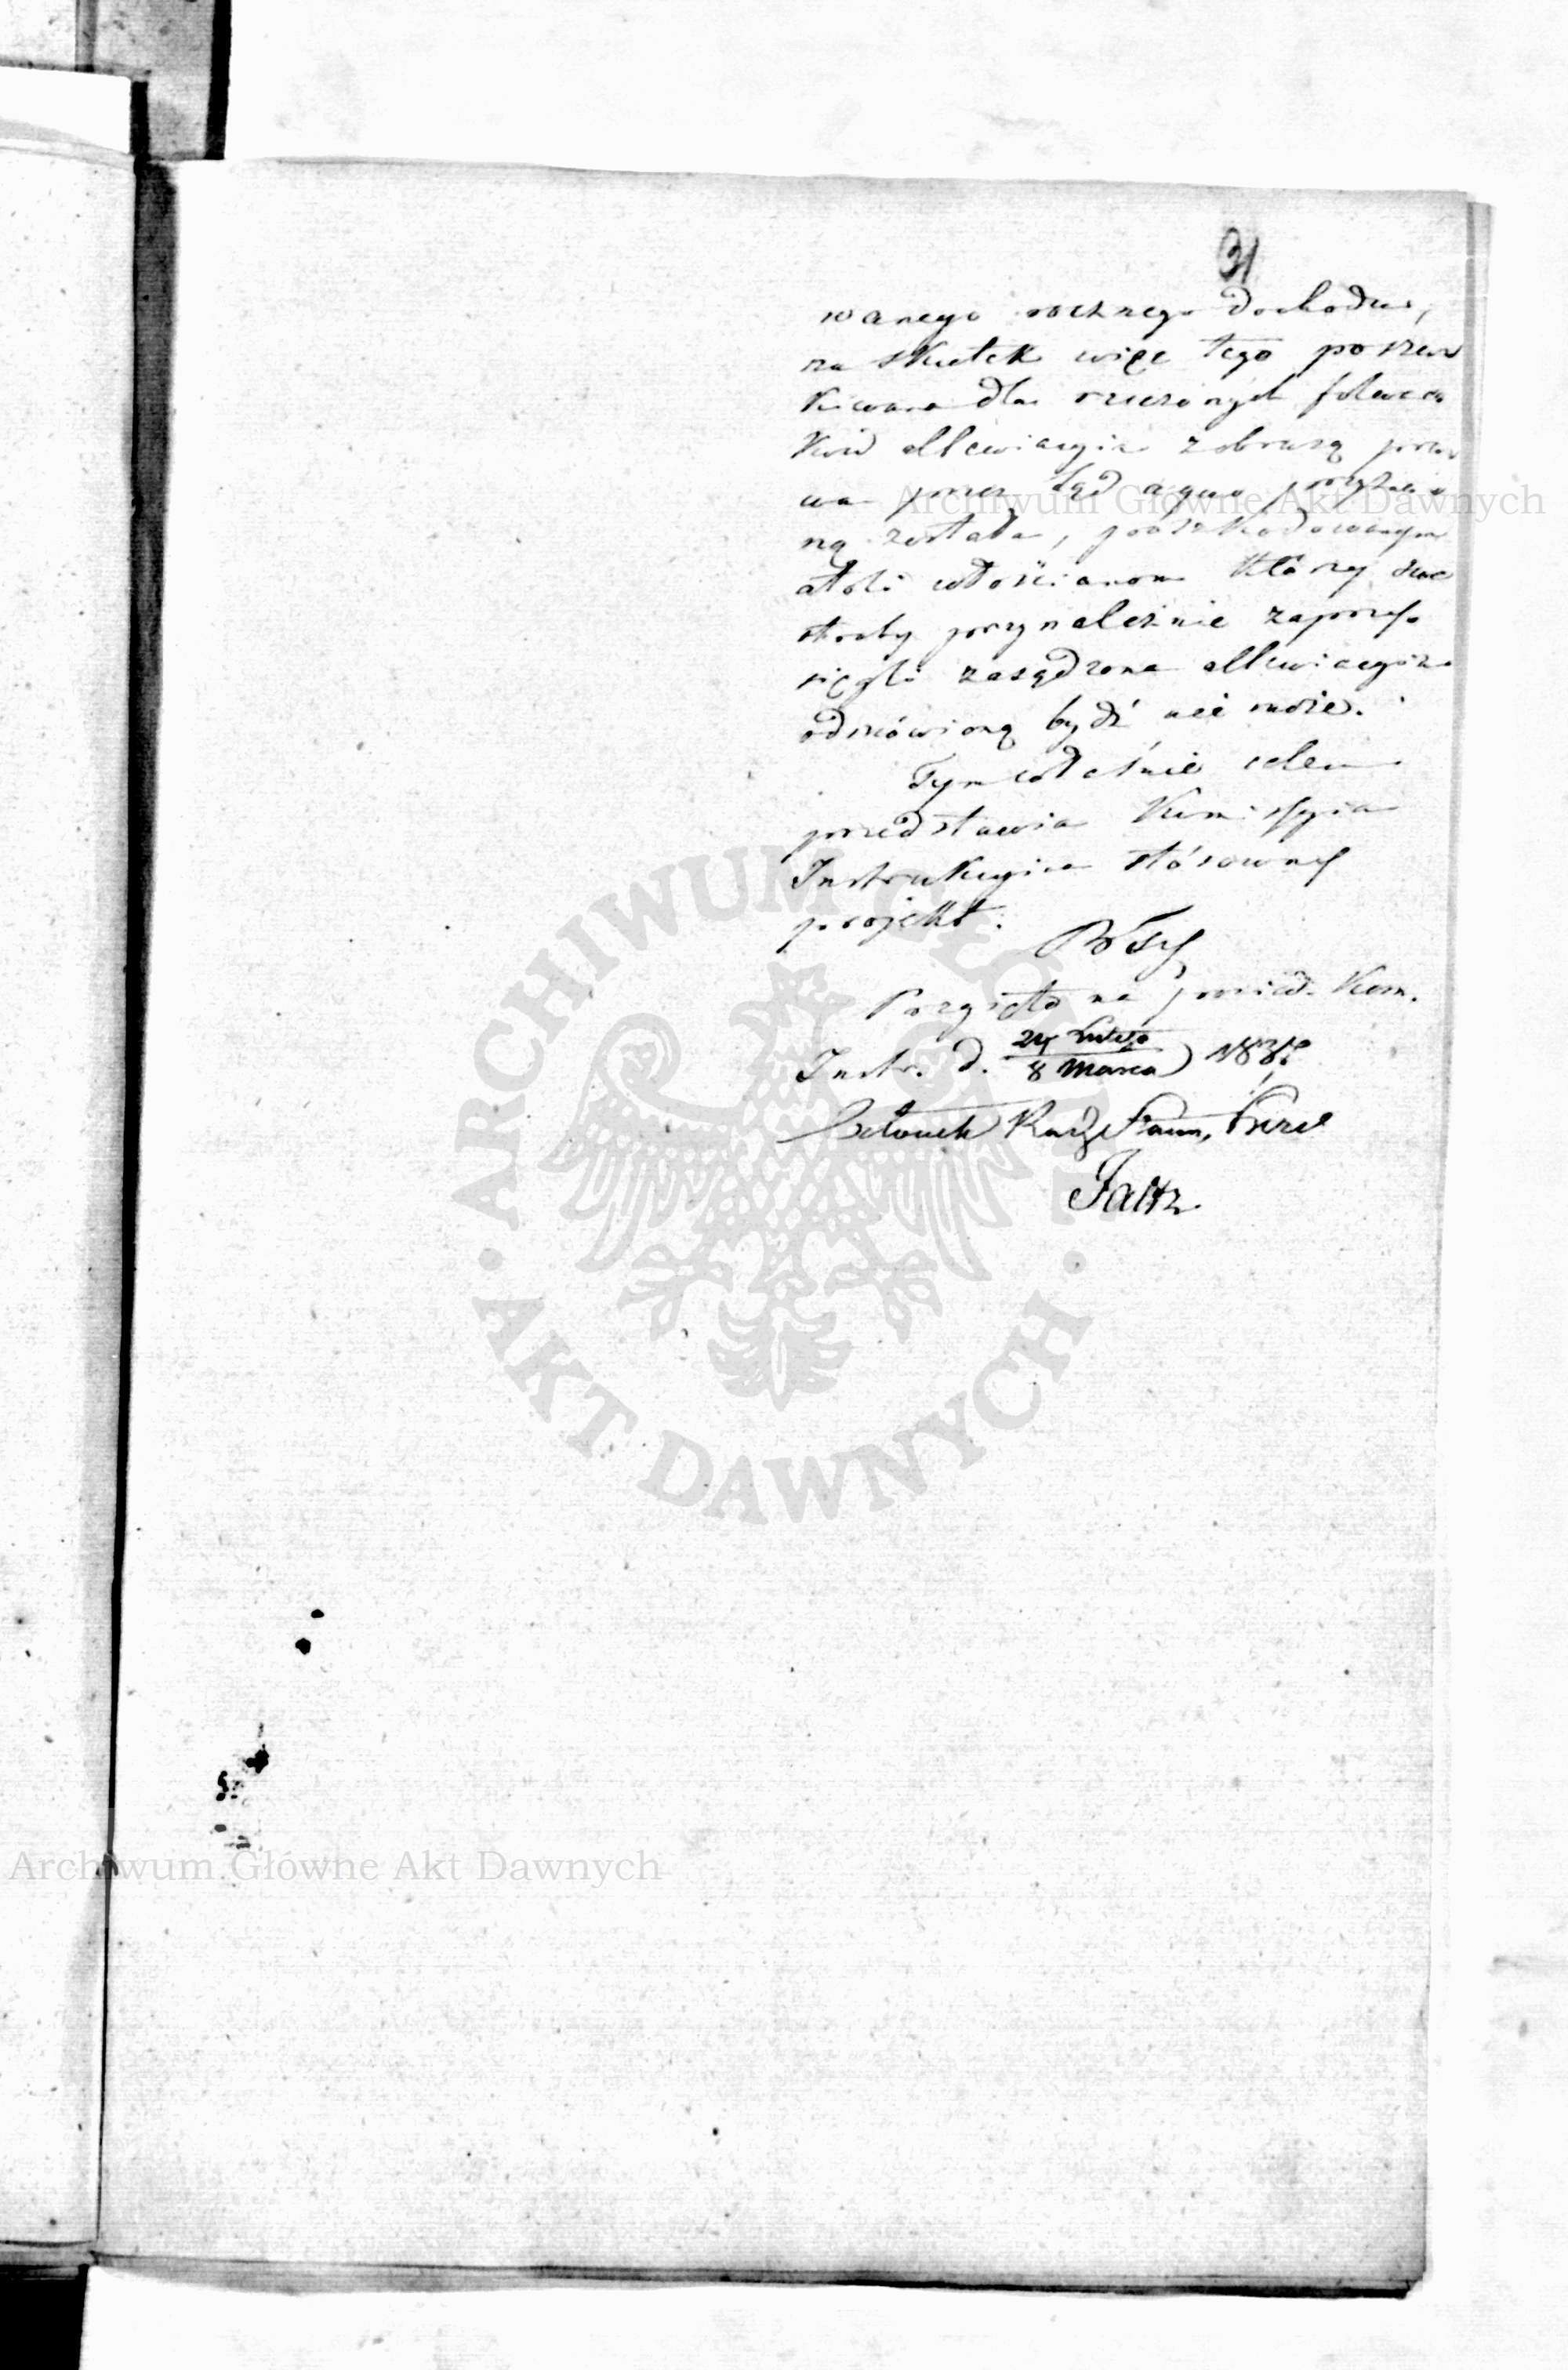 31
wanego rocznego dochodu,
na skutek więc tego poszu
kiwana dla rzeczonych folwar
ków allewiacyia z obrazą pra
wa przez Sąd a quo przyzna
ną została, poszkodowanym
atoli włościanom którzy swe
straty przynależnie zaprzy
sięgli zasądzona allewiacyia
odmówioną bydź nie może.
Tym właśnie celem
przedstawia Kommissyia
Instrukcyina stósowny
projekt.
Przyięto na posied. Kom.
Instr. d. 24 Lutego
8 Marca
Członek Rady Stanu, Prezes
Archiwum Główne Akt Dawnych
ARCHIWUM GŁÓWNE
· AKT DAWNYCH ·
Archiwum Główne Akt Dawnych